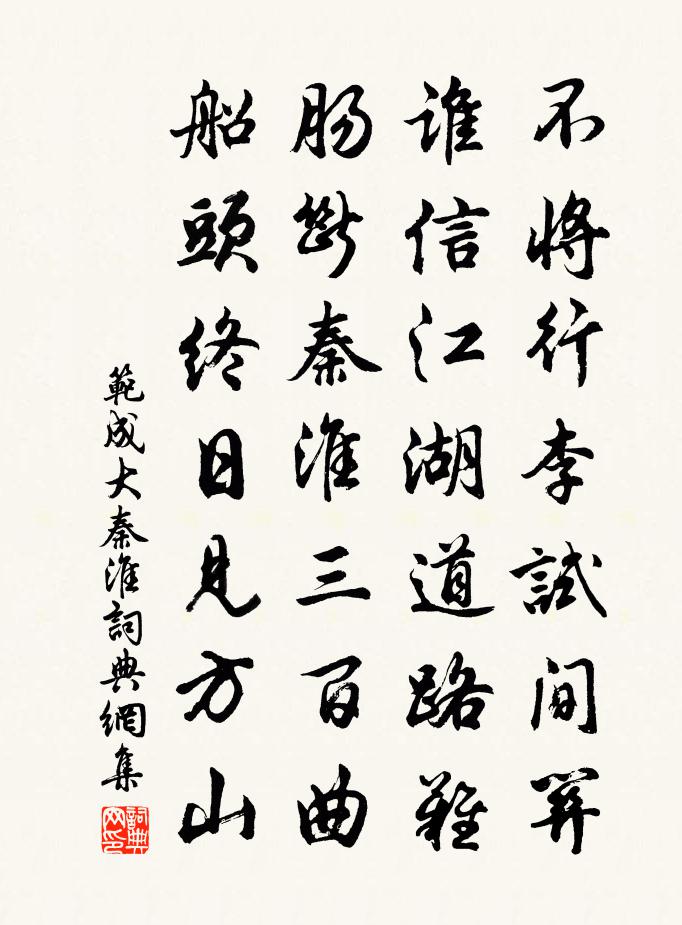 不將行李試間關
誰信江湖道路難
腸斷秦淮三百曲
船頭終日見方山
範成大秦淮詞典網集
詞典网印